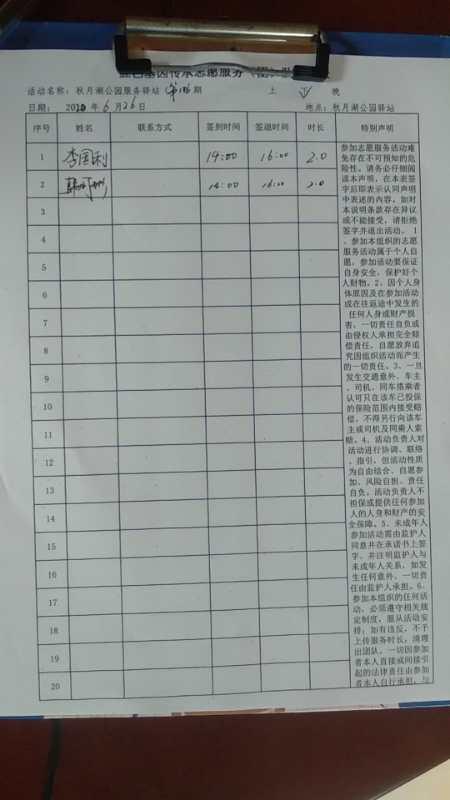 基因传承志愿服务
活动名称：秋月湖公园服务驿站 第 期 上 下 晚
日期： 2020 年 6 月 26 日 地点：秋月湖公园驿站
序号 姓名 联系方式 签到时间 签退时间 时长 特别声明
1 李国利 14:00 16:00 2.0
2 韩 14:00 16:00 2.0
3
4
5
6
7
8
9
10
11
12
13
14
15
16
17
18
19
20
参加志愿服务活动难
免存在不可预知的危
险性。请务必仔细阅
读本声明，在本表签
字后即表示认同声明
中表述的内容。如对
本说明条款存在异议
或不能接受，请拒绝
签字并退出活动。 1
、参加本组织的志愿
服务活动属于个人自
愿，参加活动要保证
自身安全，保护好个
人财物。2、因个人身
体原因及在参加活动
或在往返途中发生的
任何人身或财产损
害，一切责任自负或
由侵权人承担完全赔
偿责任，自愿放弃追
究因组织活动而产生
的一切责任。3、一旦
发生交通意外，车主
、司机、同车搭乘者
认可只在该车已投保
的保险范围内接受赔
偿，不得另行向该车
主或司机及同乘人索
赔。4、活动负责人对
活动进行协调、联络
、指引，但活动性质
为自由结合、自愿参
加、风险自担、责任
自负。活动负责人不
担保或提供任何参加
人的人身和财产的安
全保障。5、未成年人
参加活动需由监护人
同意并在承诺书上签
字，并注明监护人与
未成年人关系，如发
生任何意外，一切责
任由监护人承担。6、
参加本组织的任何活
动，必须遵守相关规
定制度，服从活动安
排；如有违反，不予
上传服务时长，清理
出团队。一切因参加
者本人直接或间接引
起的法律责任由参加
者本人自行承担，与